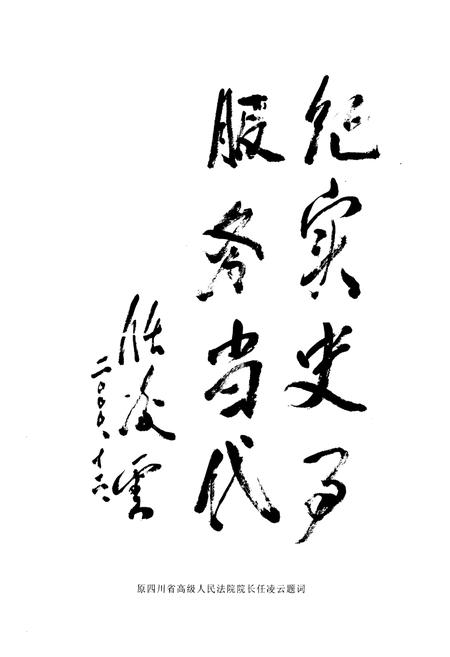 纪实史事
服务当代
任凌雲
二〇〇〇、十、六
原四川省高级人民法院院长任凌云题词